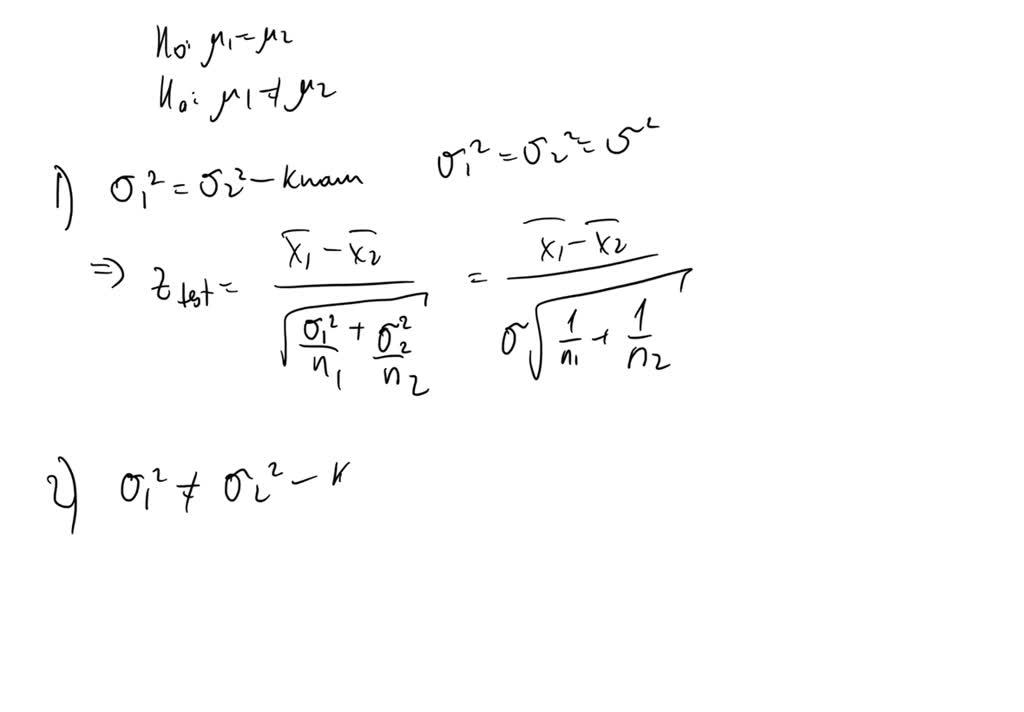 H₀: μ₁ = μ₂
Hₐ: μ₁ ≠ μ₂
1) σ₁² = σ₂² - known σ₁² = σ₂² = σ²
⇒ z_test = (x̄₁ - x̄₂) / √(σ₁²/n₁ + σ₂²/n₂) = (x̄₁ - x̄₂) / (σ√(1/n₁ + 1/n₂))
2) σ₁² ≠ σ₂² - k